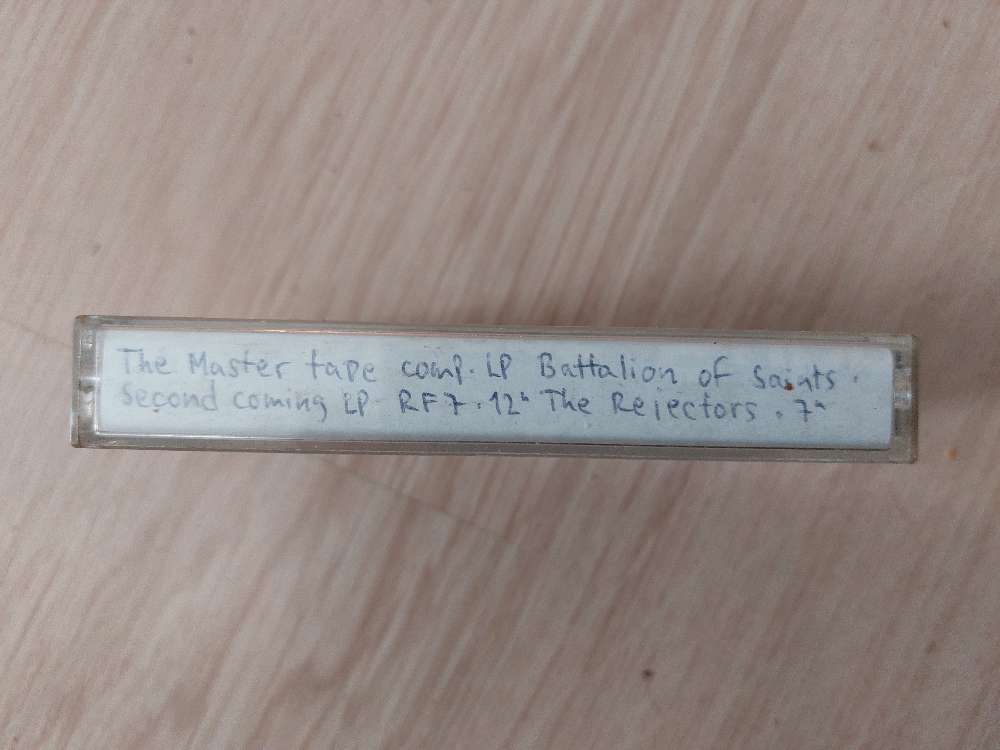 The Master tape comp. LP Battalion of Saints.
Second coming LP - RF7. 12" The Rejectors. 7"